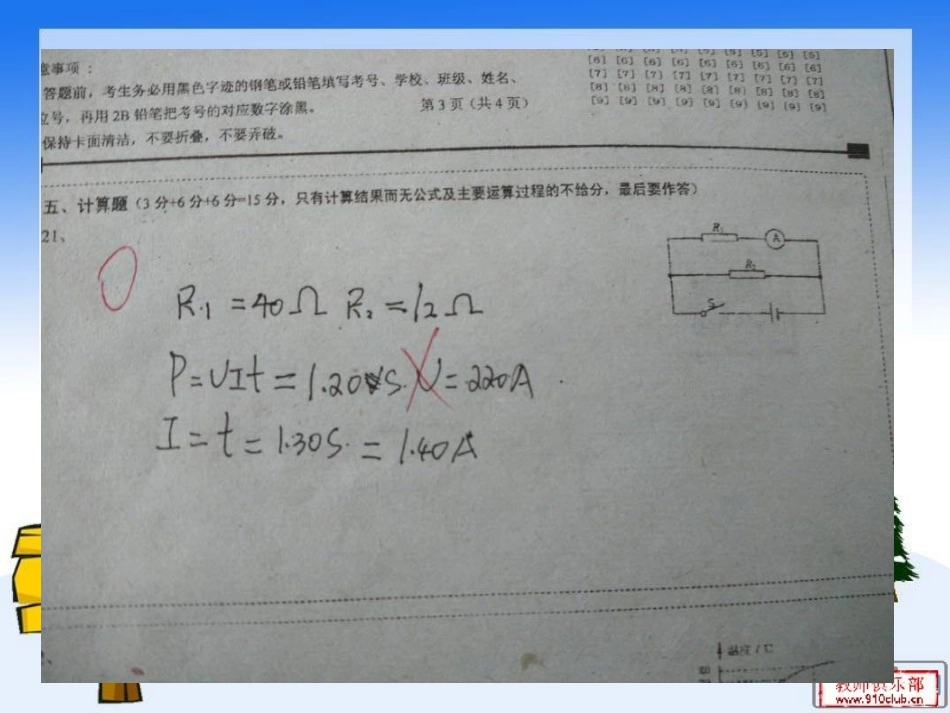 意事项：
答题前，考生务必用黑色字迹的钢笔或铅笔填写考号、学校、班级、姓名、
位号，再用 2B 铅笔把考号的对应数字涂黑。
第 3 页（共 4 页）
保持卡面清洁，不要折叠，不要弄破。
[6] [6] [6] [6] [6] [6] [6] [6] [6]
[7] [7] [7] [7] [7] [7] [7] [7] [7]
[8] [8] [8] [8] [8] [8] [8] [8] [8]
[9] [9] [9] [9] [9] [9] [9] [9] [9]
五、计算题（3 分+6 分+6 分=15 分，只有计算结果而无公式及主要运算过程的不给分，最后要作答）
21、
R₁
A
R₂
S
R₁ =40Ω R₂ =12Ω
P=UIt=1.20 S. U=220A
I=t=1.30S. =1.40A
温度/℃
教师俱乐部
www.910club.cn